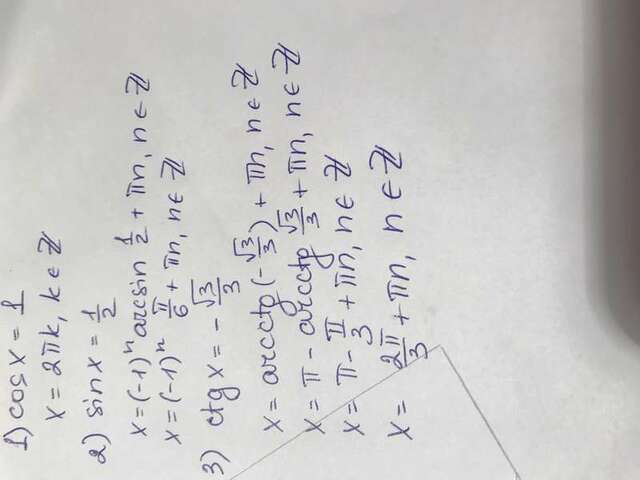 1) cos x = 1
x = 2πk, k ∈ ℤ
2) sin x = 1/2
x = (-1)ⁿ arcsin 1/2 + πn, n ∈ ℤ
x = (-1)ⁿ π/6 + πn, n ∈ ℤ
3) ctg x = - √3/3
x = arcctg (- √3/3) + πn, n ∈ ℤ
x = π - arcctg √3/3 + πn, n ∈ ℤ
x = π - π/3 + πn, n ∈ ℤ
x = 2π/3 + πn, n ∈ ℤ